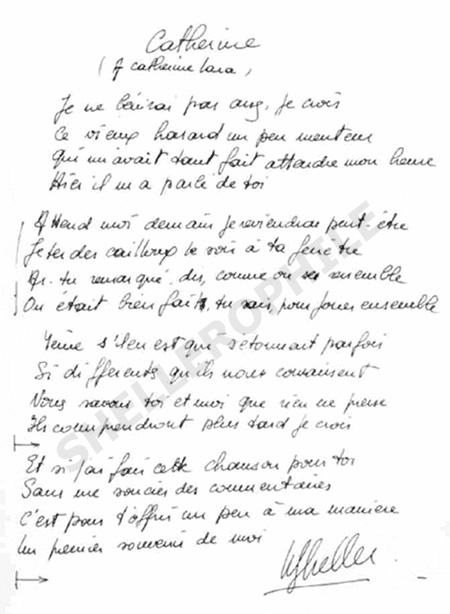 Catherine
(A catherine Lara,
Je ne bénirai pas assez, je crois
Ce vieux hasard un peu menteur
Qui m'avait tant fait attendre mon heure
Hier il m'a parlé de toi
Attend moi demain je reviendrai peut-être
Jeter des cailloux le soir à ta fenêtre
As-tu remarqué dis, comme on se ressemble
On était bien faits, tu sais, pour jouer ensemble
Même s'il en est qui s'étonnent parfois
Si différents qu'ils nous connaissent
Nous savons toi et moi que rien ne presse
Ils comprendront plus tard je crois
Et si j'ai fait cette chanson pour toi
Sans me soucier des commentaires
C'est pour t'offrir un peu à ma manière
Un premier souvenir de moi
WSheller
SHELLEROPHILE